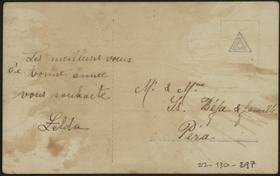 Les meilleurs vœux
de bonne année
vous souhaite
Zelda
Mr & Mme
St. & famille
Péra
22-130-297